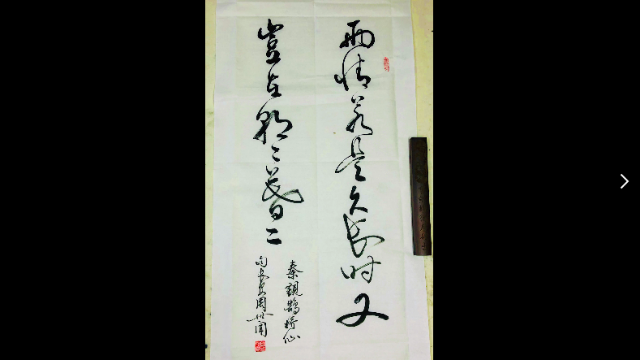 两情若是久长时又
岂在朝〻暮〻
秦观鹊桥仙